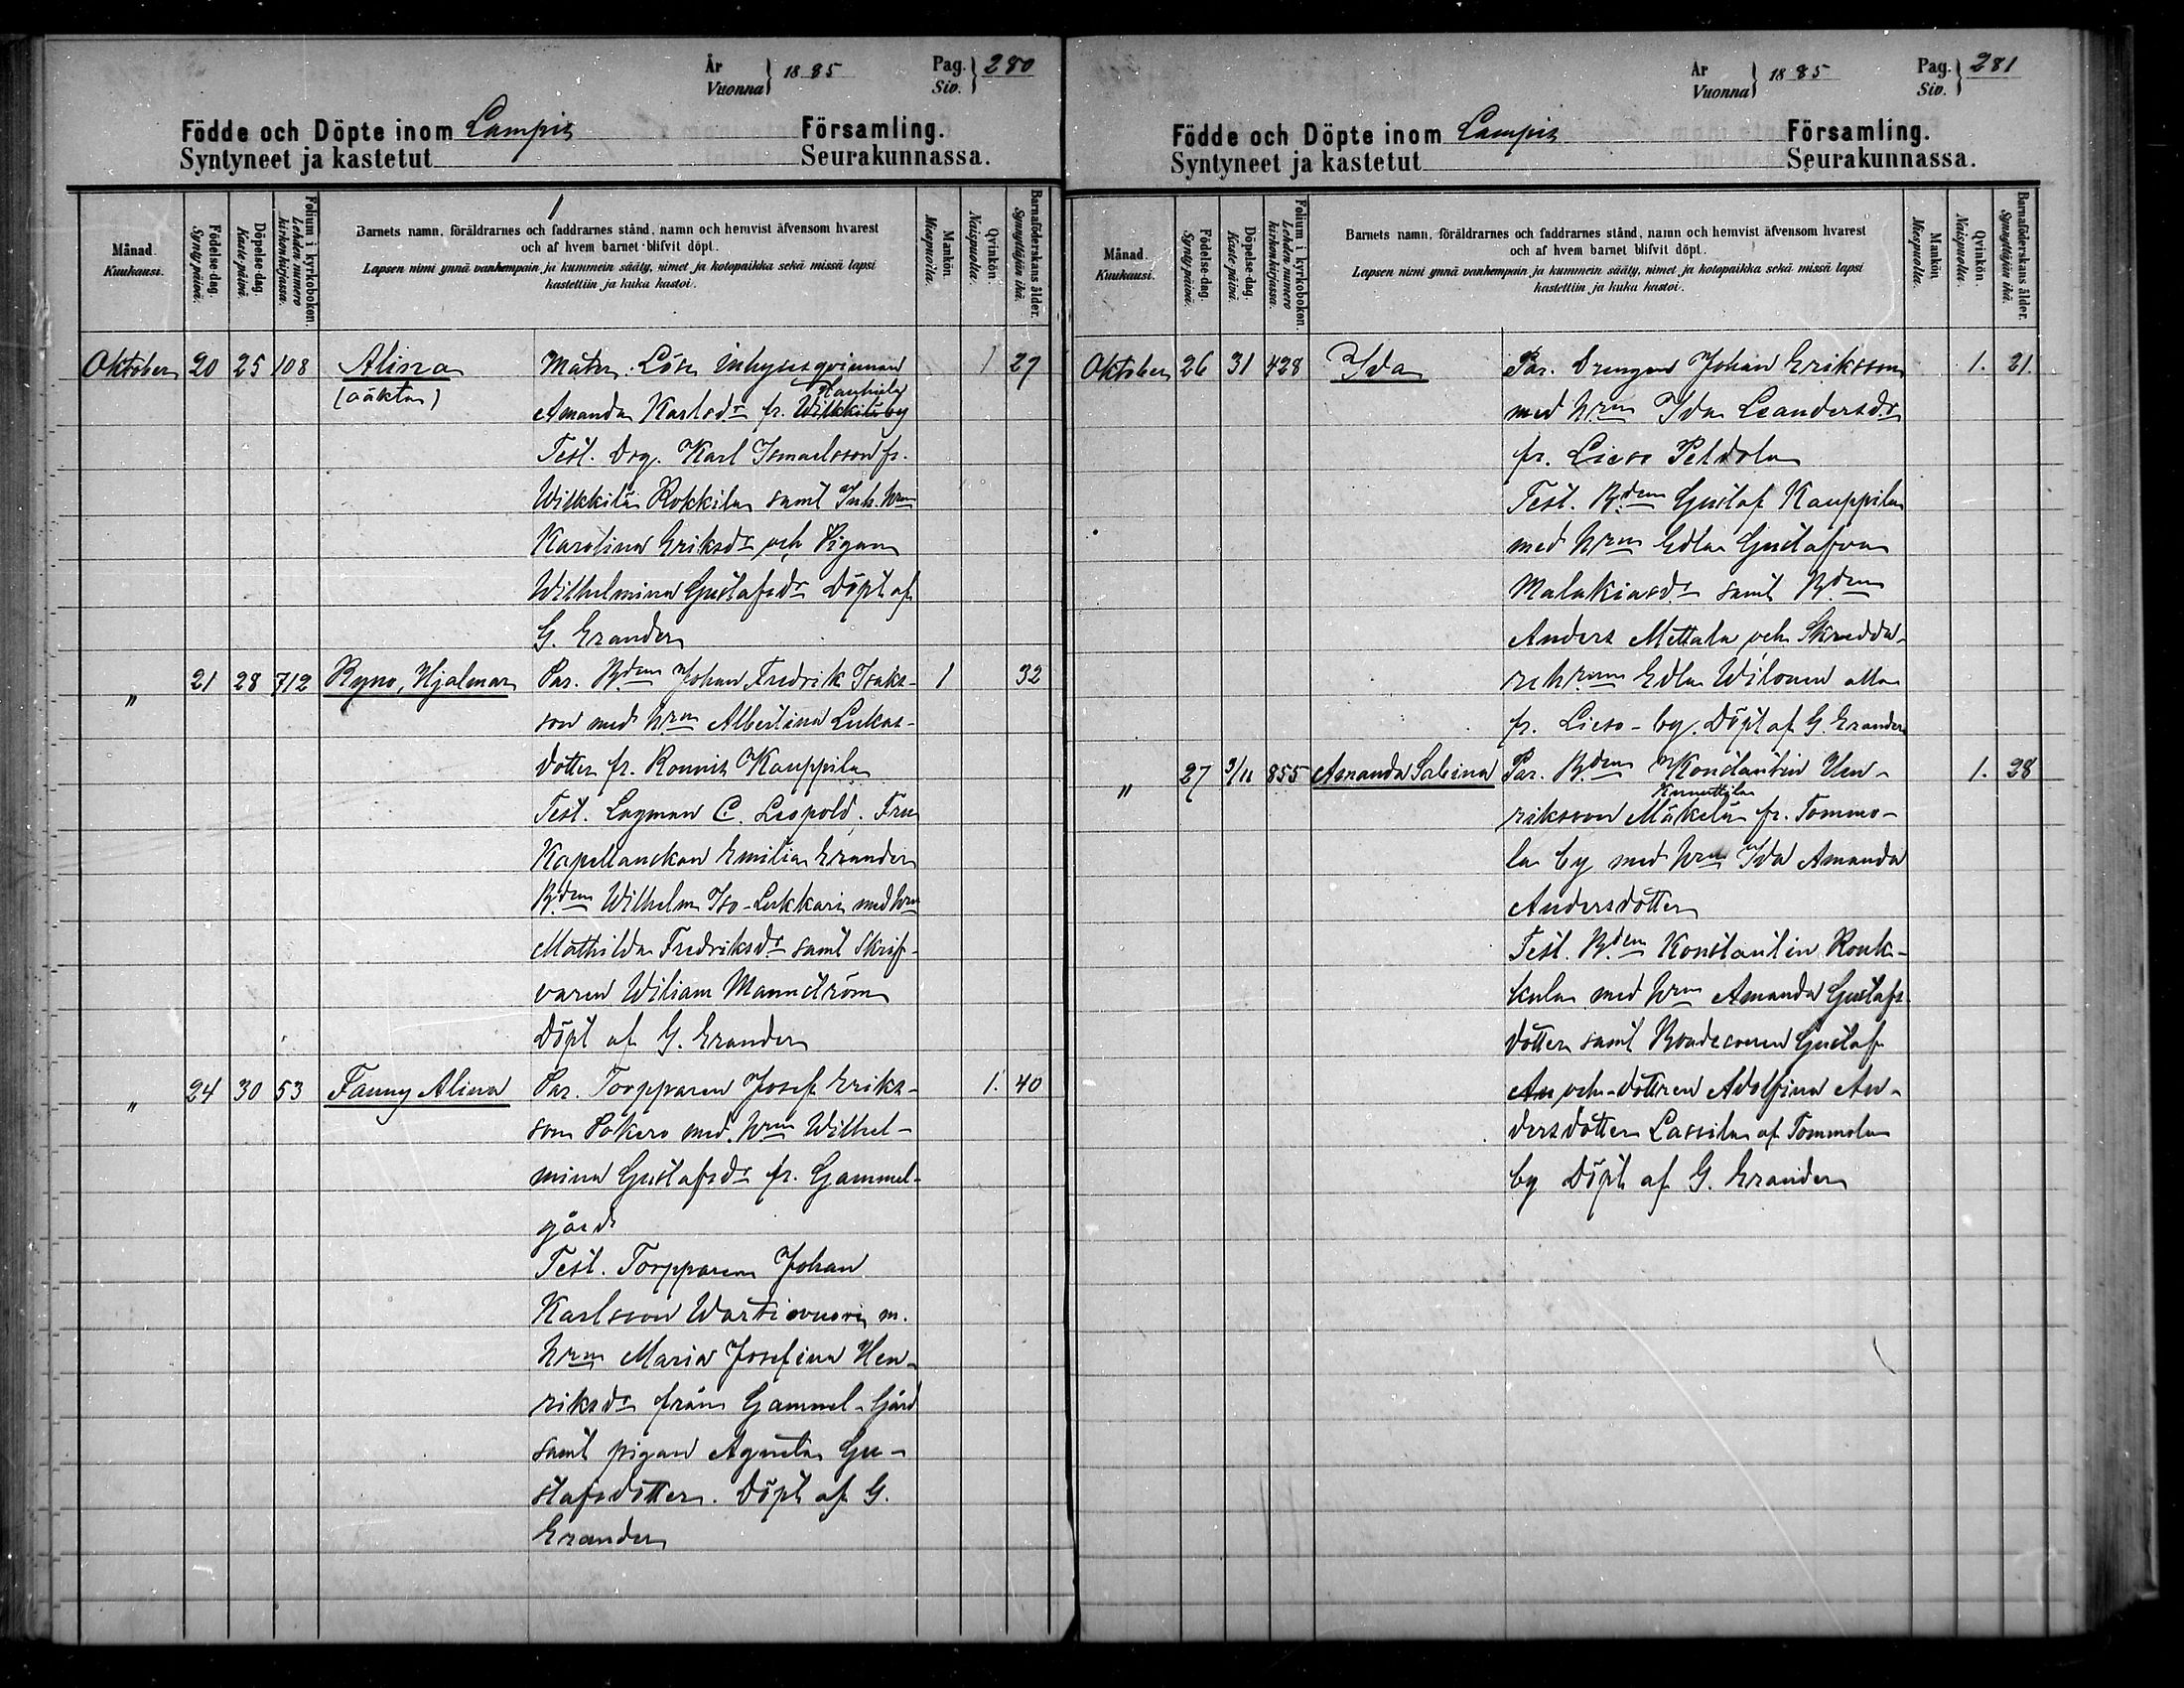 År
Vuonna } 1885
Pag.
Siv. } 280
Födde och Döpte inom Lampis Församling.
Syntyneet ja kastetut Seurakunnassa.
Månad.
Kuukausi.
Födelse-dag.
Synty-päivä.
Döpelse-dag.
Kaste-päivä.
Folium i kyrkobokon.
Lehden numero
kirkonkirjassa.
Barnets namn, föräldrarnes och faddrarnes stånd, namn och hemvist äfvensom hvarest
och af hvem barnet blifvit döpt.
Lapsen nimi ynnä vanhempain ja kummein sääty, nimet ja kotopaikka sekä missä lapsi
kastettiin ja kuka kastoi.
Mankön.
Miespuolta.
Qvinkön.
Naispuolta.
Barnaföderskans ålder.
Synnyttäjän ikä.
Oktober 20 25 108 Alina Mater. Lösa inhysesqvinnan 1 27
(oäkta) Amanda Karlsdr fr. Wilkkilä by
Test. Drg. Karl Ismaelsson fr.
Wilkkilä Rokkila samt Inh. hrn
Karolina Eriksdr och Pigan
Wilhelmina Gustafsdr Döpt af
G. Erander
" 21 28 712 Ryno, Hjalmar Par. Bden Johan Fredrik Isaks- 1 32
son med hrn Albertina Lukas-
dotter fr. Ronnis Kauppila
Test. Lagman C. Leopold. Fru
Kapellanskan Emilia Erander
Bden Wilhelm Iso-Lukkari med hrn
Mathilda Fredriksdr samt Skrif-
varen Wiliam Mannström
Döpt af G. Erander
" 24 30 53 Fanny Alina Par. Torpparen Josef Eriks- 1. 40
son Sokero med hrn Wilhel-
mina Gustafsdr fr. Gammel-
gård
Test. Torpparen Johan
Karlsson Wartiovuori m.
hrn Maria Josefina Hen-
riksdr från Gammel-Gård
samt pigan Agneta Gu-
stafsdotter. Döpt af G.
Erander
År
Vuonna } 1885
Pag.
Siv. } 281
Födde och Döpte inom Lampis Församling.
Syntyneet ja kastetut Seurakunnassa.
Månad.
Kuukausi.
Födelse-dag.
Synty-päivä.
Döpelse-dag.
Kaste-päivä.
Folium i kyrkobokon.
Lehden numero
kirkonkirjassa.
Barnets namn, föräldrarnes och faddrarnes stånd, namn och hemvist äfvensom hvarest
och af hvem barnet blifvit döpt.
Lapsen nimi ynnä vanhempain ja kummein sääty, nimet ja kotopaikka sekä missä lapsi
kastettiin ja kuka kastoi.
Mankön.
Miespuolta.
Qvinkön.
Naispuolta.
Barnaföderskans ålder.
Synnyttäjän ikä.
Oktober 26 31 428 Ida Par. Drengen Johan Eriksson 1. 21.
med hrn Ida Leandersdr
fr. Lieso Peldola
Test. Bden Gustaf Kauppila
med hrn Edla Gustafva
Malakiasdr samt Bden
Anders Mettala och Skredda-
rehrn Edla Wilonen alla
fr. Lieso-by. Döpt af G. Erander
" 27 3/11 855 Amanda Sabina Par. Bden Konstantin Hen- 1. 28
Kunnttila
riksson Mäkelä fr. Tommo-
la by med hrn Ida Amanda
Andersdotter
Test. Bden Konstantin Rouk-
kula med hrn Amanda Gustafs
dotter samt Bondesonen Gustaf
An och dottren Adolfina An-
dersdotter Lassila af Tommola
by Döpt af G. Erander